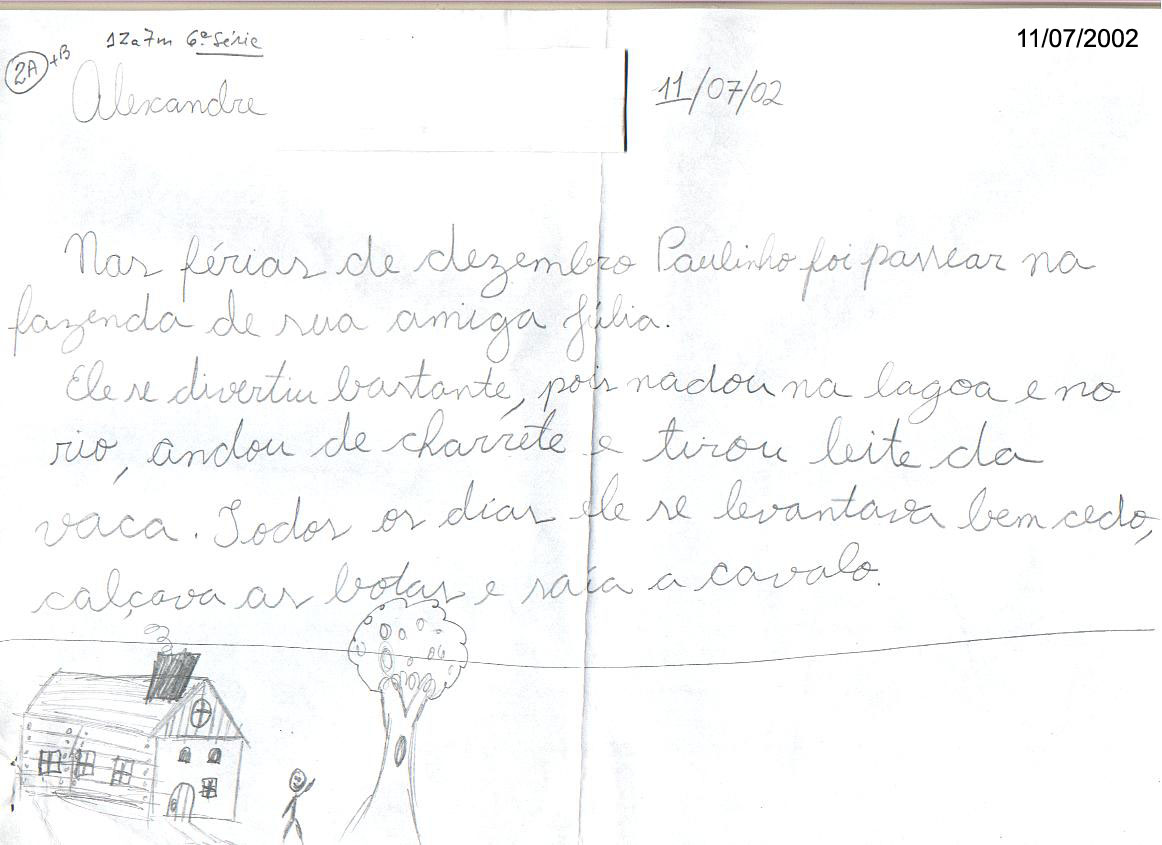 11/07/2002
2A +B
12a7m 6ª série
Alexandre
11/07/02
Nas férias de dezembro Paulinho foi passear na
fazenda de sua amiga Júlia.
Ele se divertiu bastante, pois nadou na lagoa e no
rio, andou de charrete e tirou leite da
vaca. Todos os dias ele se levantava bem cedo,
calçava as botas e saía a cavalo.